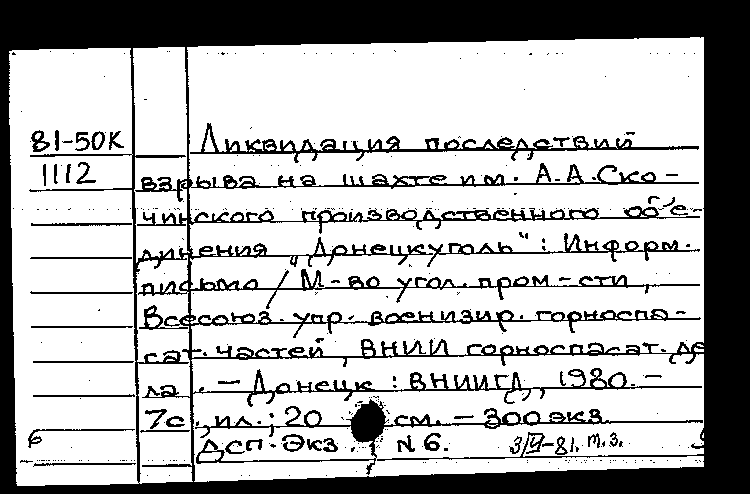 81-50К Ликвидация последствий
1112 взрыва на шахте им. А.А.Ско-
чинского производственного объе-
динения „Донецкуголь“: Информ.
письмо / М-во угол. пром-сти,
Всесоюз. упр. военизир. горноспа-
сат. частей, ВНИИ горноспасат. де
ла. – Донецк : ВНИИГД, 1980. –
7с., ил.; 20 см. – 300 экз.
6 ДСП. Экз. N 6. 3/VI-81. т.з.